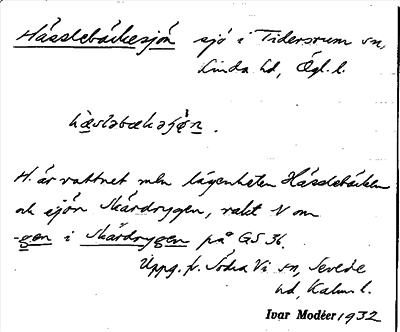 Hässlebäckesjön sjö i Tidersrum sn,
Kinda hd, Ögl. l.
hæsləbækəʃø̀n.
H. är vattnet mln lägenheten Hässlebäcken
och sjön Skärdrygen, rakt N om
-gen i Skärdrygen på GS 36.
Uppg. fr. Södra Vi sn, Sevede
hd, Kalm. l.
Ivar Modéer 1932